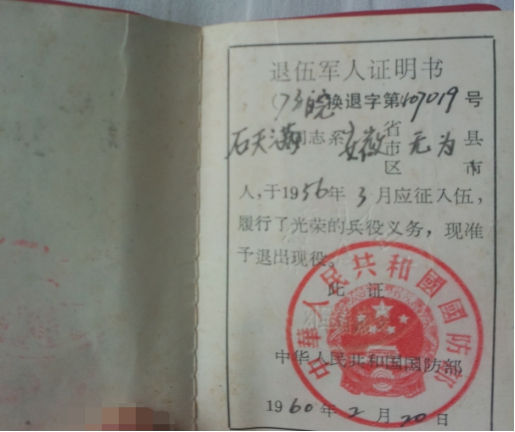 退伍军人证明书
(73皖换退字第107019号
石天满同志系安徽省市区无为县市
人,于1956年3月应征入伍,
履行了光荣的兵役义务,现准
予退出现役。
此证
中华人民共和国国防部
中華人民共和國國防部
1960年2月20日